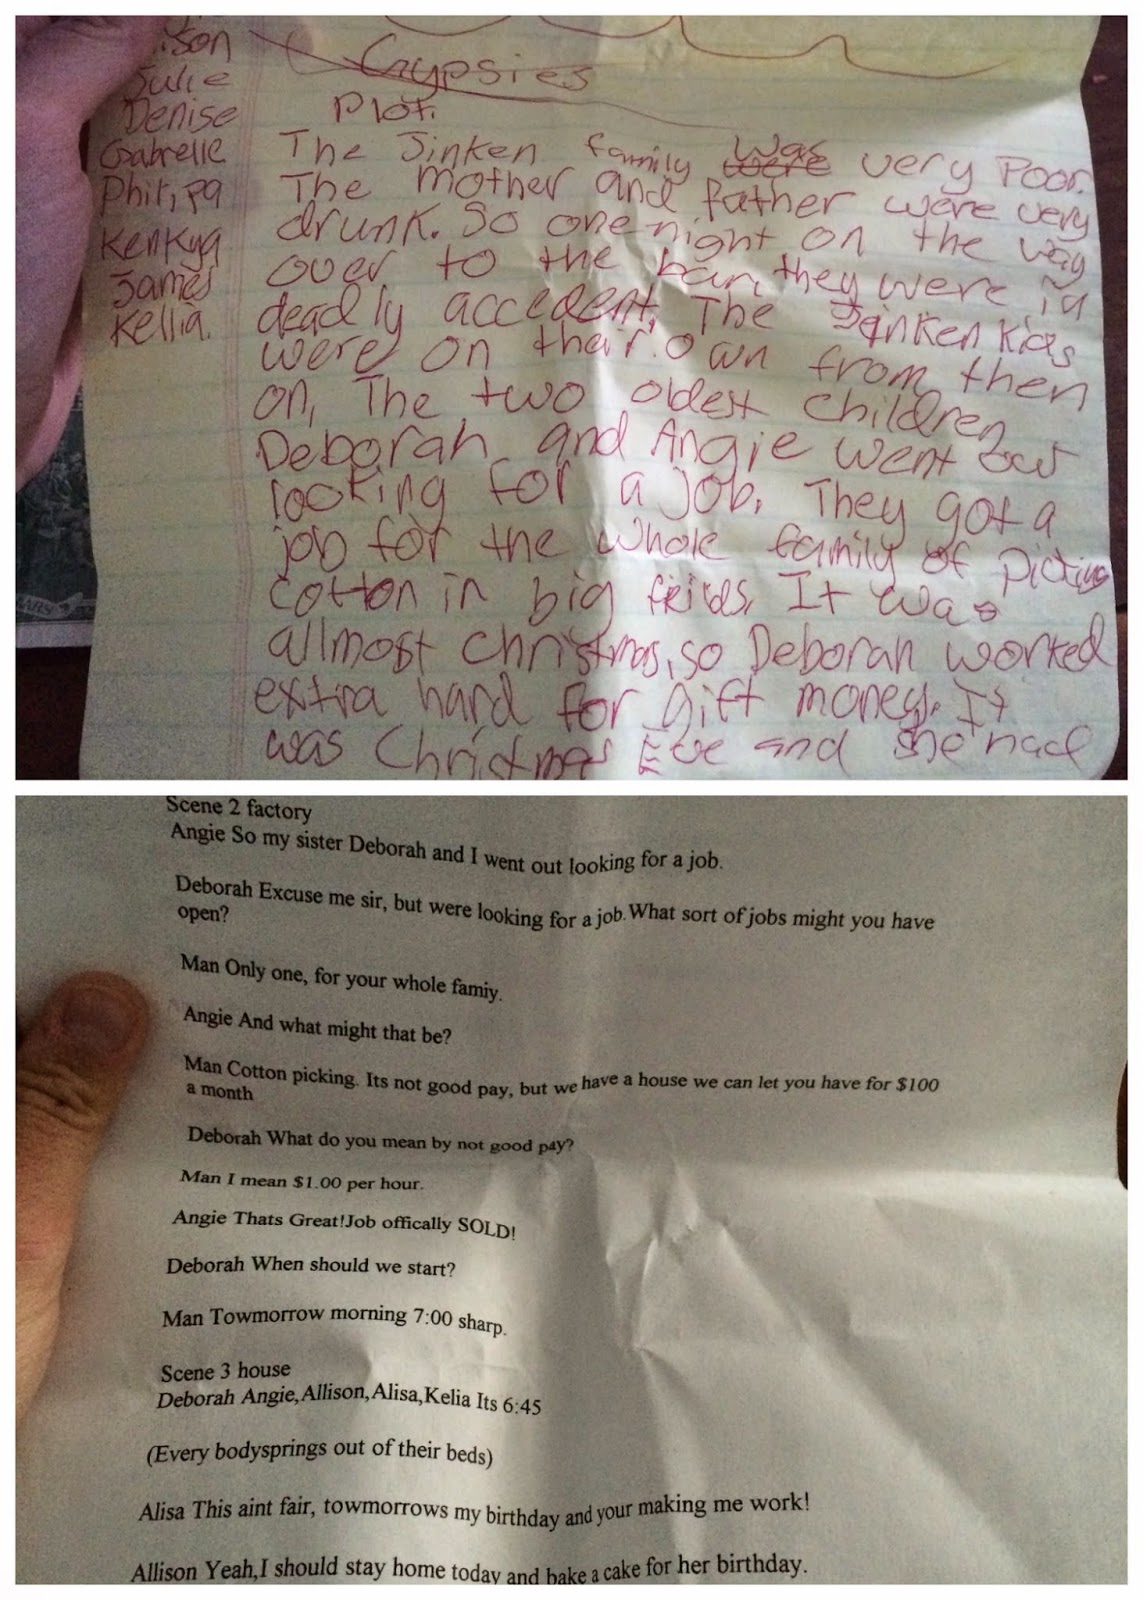 Julie
Denise
Gabrelle
Philipa
Kenkya
James
Kellia.
Gypsies
Plot.
The Jinken family was were very Poor.
The mother and father were very
drunk. So one night on the way
over to the bar, they were in
deadly accedent. The Jinken kids
were on their own from then
on, The two oldest children
Deborah and Angie went out
looking for a job. They got a
job for the whole family of picking
cotton in big feilds. It was
allmost christmas, so Deborah worked
extra hard for gift money. It
was Christmas Eve and she had
Scene 2 factory
Angie So my sister Deborah and I went out looking for a job.
Deborah Excuse me sir, but were looking for a job.What sort of jobs might you have
open?
Man Only one, for your whole famiy.
Angie And what might that be?
Man Cotton picking. Its not good pay, but we have a house we can let you have for $100
a month
Deborah What do you mean by not good pay?
Man I mean $1.00 per hour.
Angie Thats Great!Job offically SOLD!
Deborah When should we start?
Man Towmorrow morning 7:00 sharp.
Scene 3 house
Deborah Angie,Allison,Alisa,Kelia Its 6:45
(Every bodysprings out of their beds)
Alisa This aint fair, towmorrows my birthday and your making me work!
Allison Yeah,I should stay home today and bake a cake for her birthday.